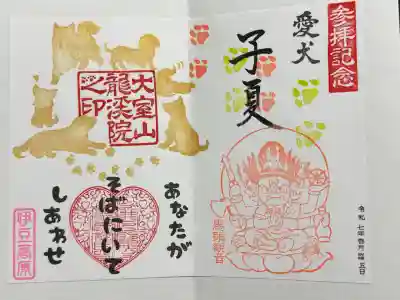 参拝記念
愛犬
子夏
馬頭観音
令和七年壱月五日
大室山
龍渓院
之印
あなたが
そばにいて
しあわせ
伊豆高原